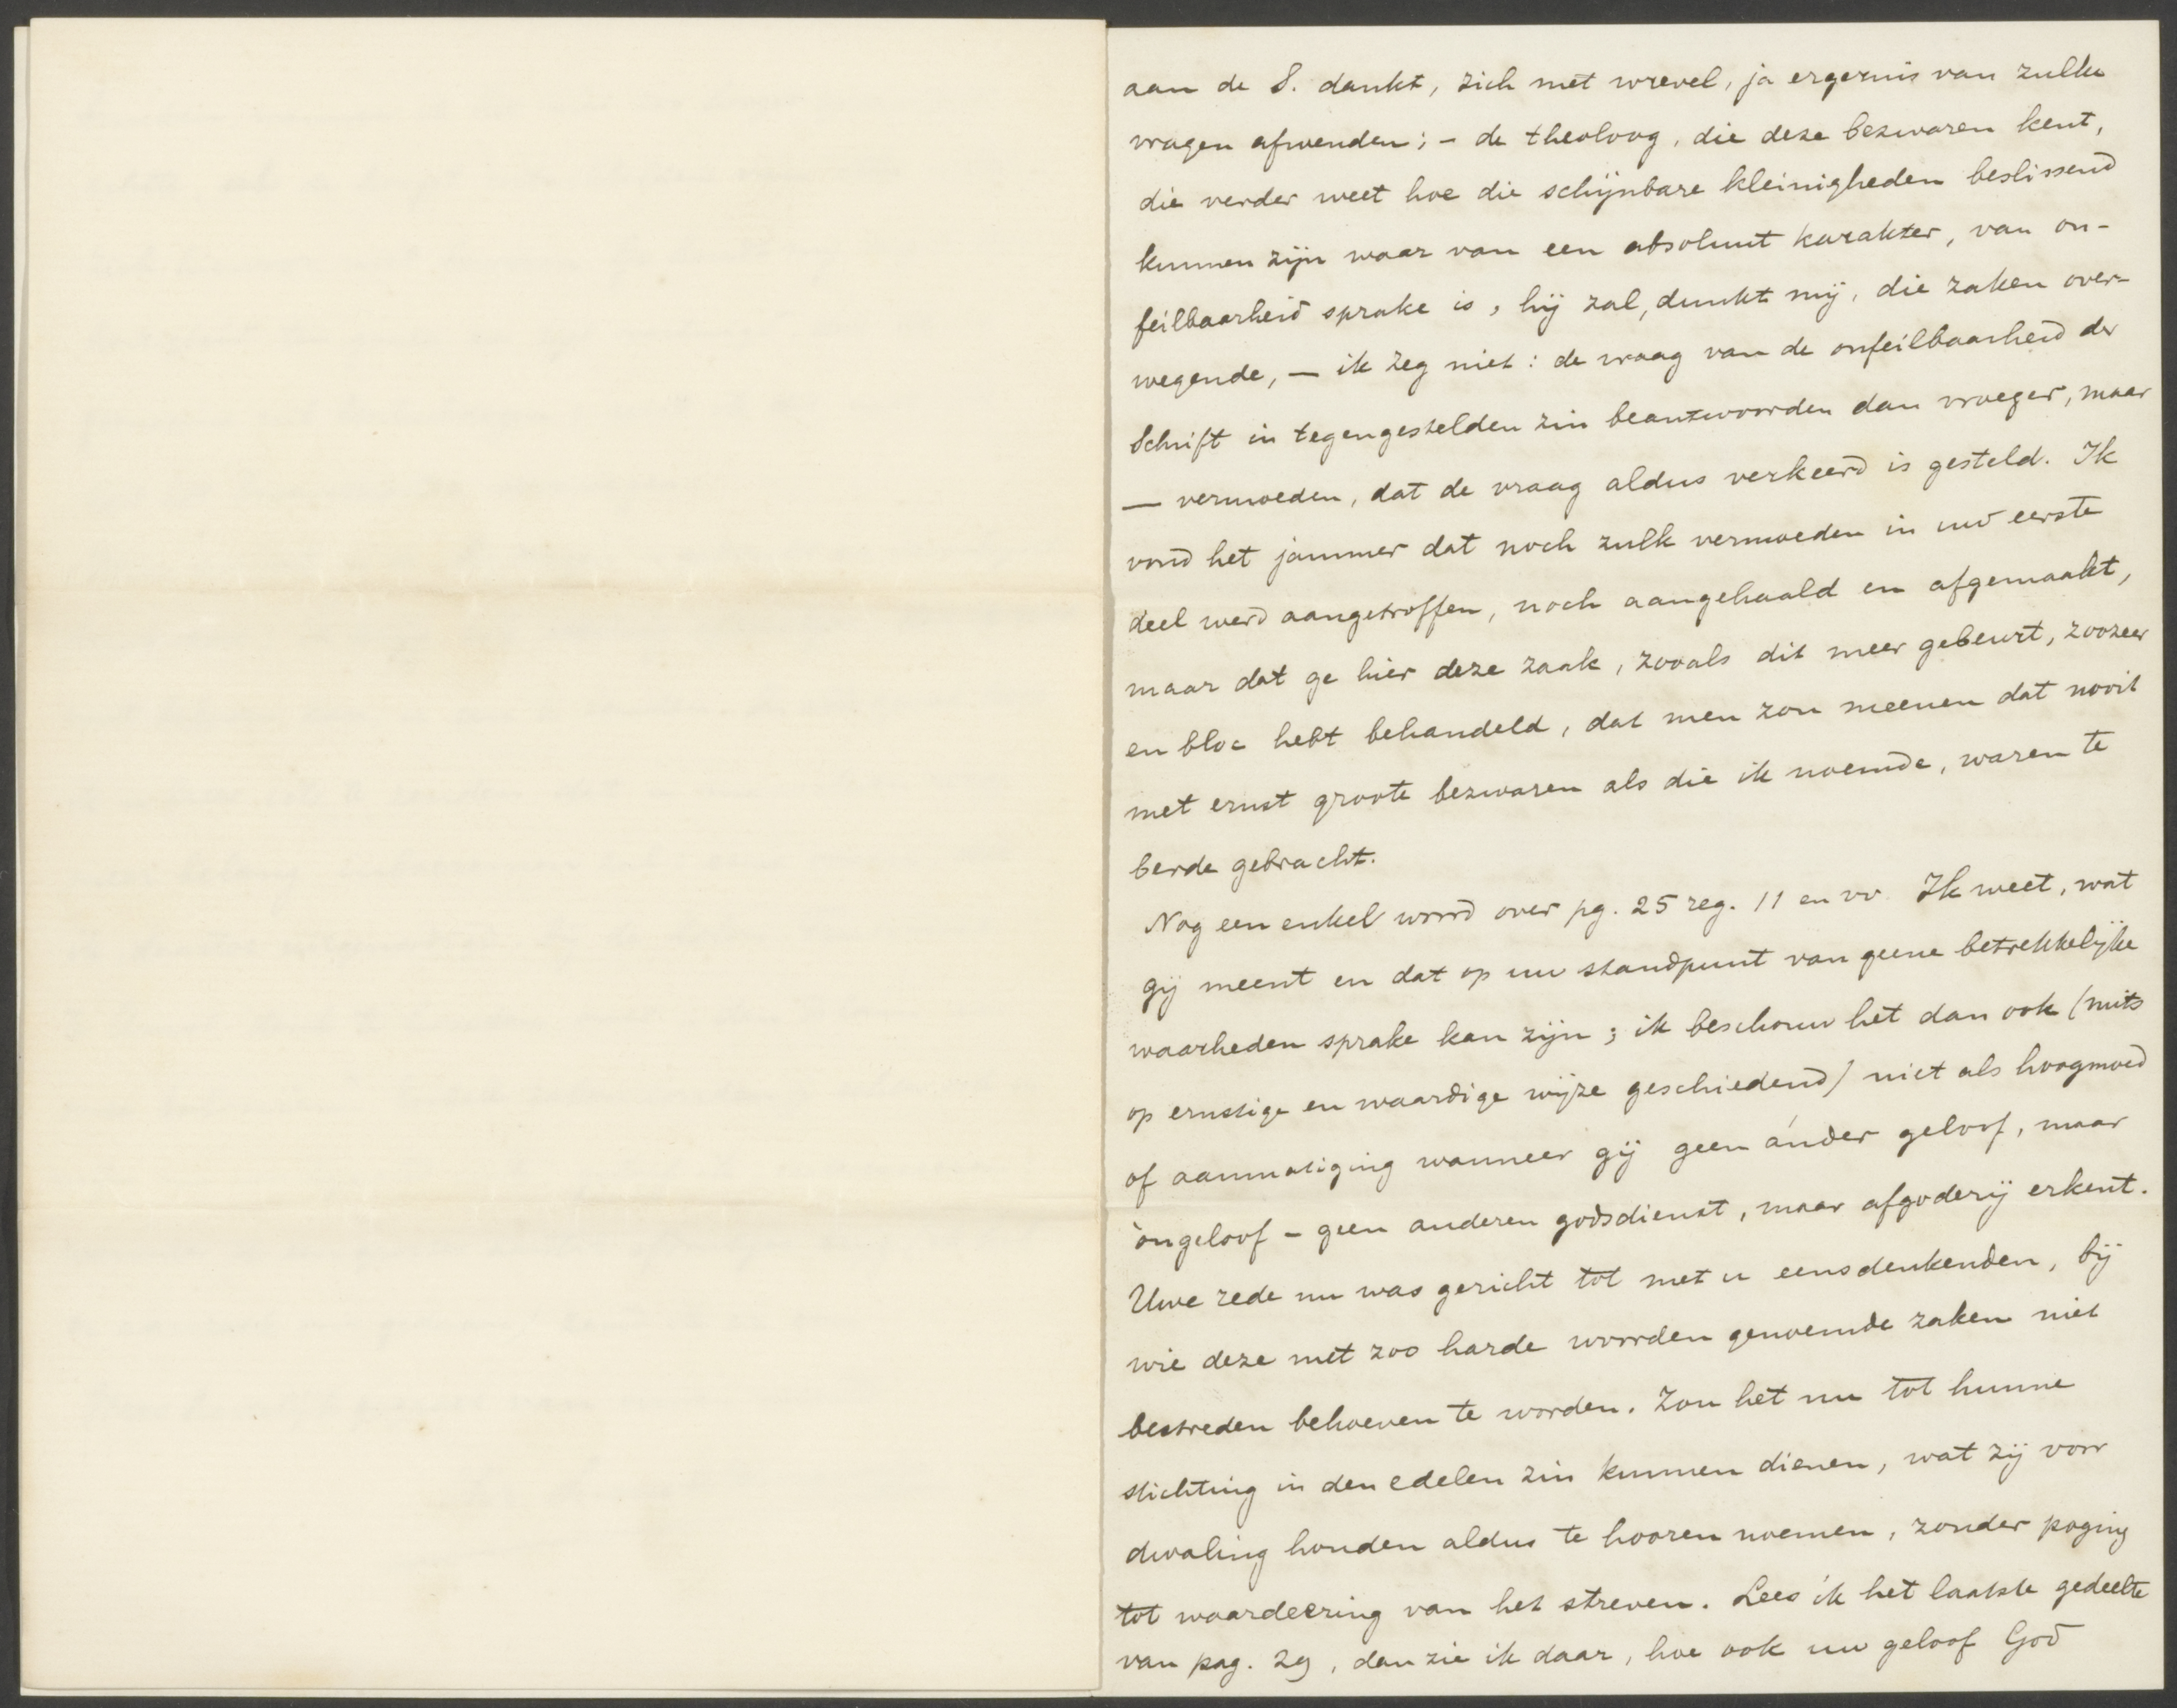 aan de S. dankt, zich met wrevel, ja ergernis van zulke
vragen afwenden; – de theoloog, die deze bezwaren kent,
die verder weet hoe die schijnbare kleinigheden beslissend
kunnen zijn waar van een absoluut karakter, van on-
feilbaarheid sprake is, hij zal, dunkt mij, die zaken over-
wegende, — ik zeg niet: de vraag van de onfeilbaarheid der
Schrift in tegengestelden zin beantwoorden dan vroeger, maar
— vermoeden, dat de vraag aldus verkeerd is gesteld. Ik
vond het jammer dat noch zulk vermoeden in uw eerste
deel werd aangetroffen, noch aangehaald en afgemaakt,
maar dat ge hier deze zaak, zooals dit meer gebeurt, zoozeer
en bloc hebt behandeld, dat men zou meenen dat nooit
met ernst groote bezwaren als die ik noemde, waren te
berde gebracht.
Nog een enkel woord over pg. 25 reg. 11 en vv. Ik weet, wat
gij meent en dat op uw standpunt van geene betrekkelijke
waarheden sprake kan zijn; ik beschouw het dan ook (mits
op ernstige en waardige wijze geschiedend) niet als hoogmoed
of aanmatiging wanneer gij geen ánder geloof, maar
òngeloof – geen anderen godsdienst, maar afgoderij erkent.
Uwe rede nu was gericht tot met u eensdenkenden, bij
wie deze met zoo harde woorden genoemde zaken niet
bestreden behoeven te worden. Zou het nu tot hunne
stichting in den edelen zin kunnen dienen, wat zij voor
dwaling houden aldus te hooren noemen, zonder poging
tot waardeering van het streven. Lees ik het laatste gedeelte
van pag. 29, dan zie ik daar, hoe ook uw geloof God